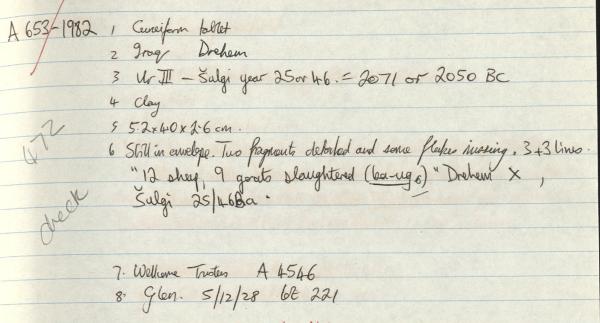 A 653-1982 1 Cuneiform tablet
2 Iraq Drehem
3 Ur III – Šulgi year 25 or 46. = 2071 or 2050 BC
4 Clay
5 5.2 x 4.0 x 2.6 cm.
6 Still in envelope. Two fragments detached and some flakes missing. 3+3 lines.
"12 sheep, 9 goats slaughtered (ba-ug6)" Drehem X,
Šulgi 25/46Ba.
472
check
7. Wellcome Trustees A 4546
8. Glen. 5/12/28 221